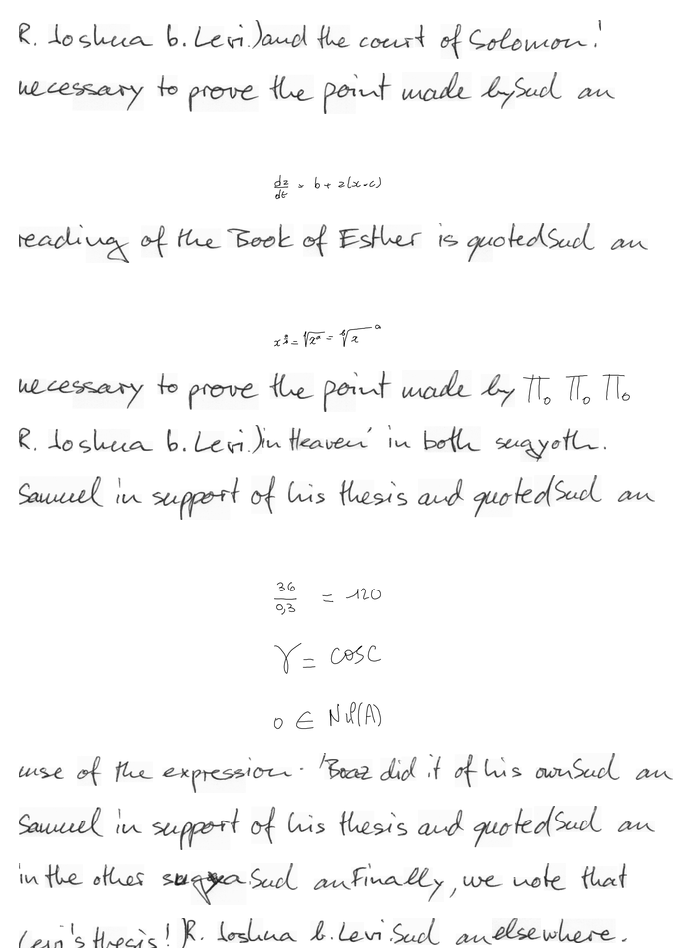 R. Joshua b. Levi.) and the court of Solomon!
necessary to prove the point made by Sud an
dz/dt = b + z(x-c)
reading of the Book of Esther is quoted Sud an
necessary to prove the point made by Π₀ Π₀ Π₀
R. Joshua b. Levi.) in Heaven' in both sugyoth.
Samuel in support of his thesis and quoted Sud an
36/0,3 = 120
γ = cos C
0 ∈ Nil(A)
use of the expression. 'Boaz did it of his own Sud an
Samuel in support of his thesis and quoted Sud an
in the other sugya Sud an Finally, we note that
Levi's thesis! R. Joshua b. Levi Sud an elsewhere.